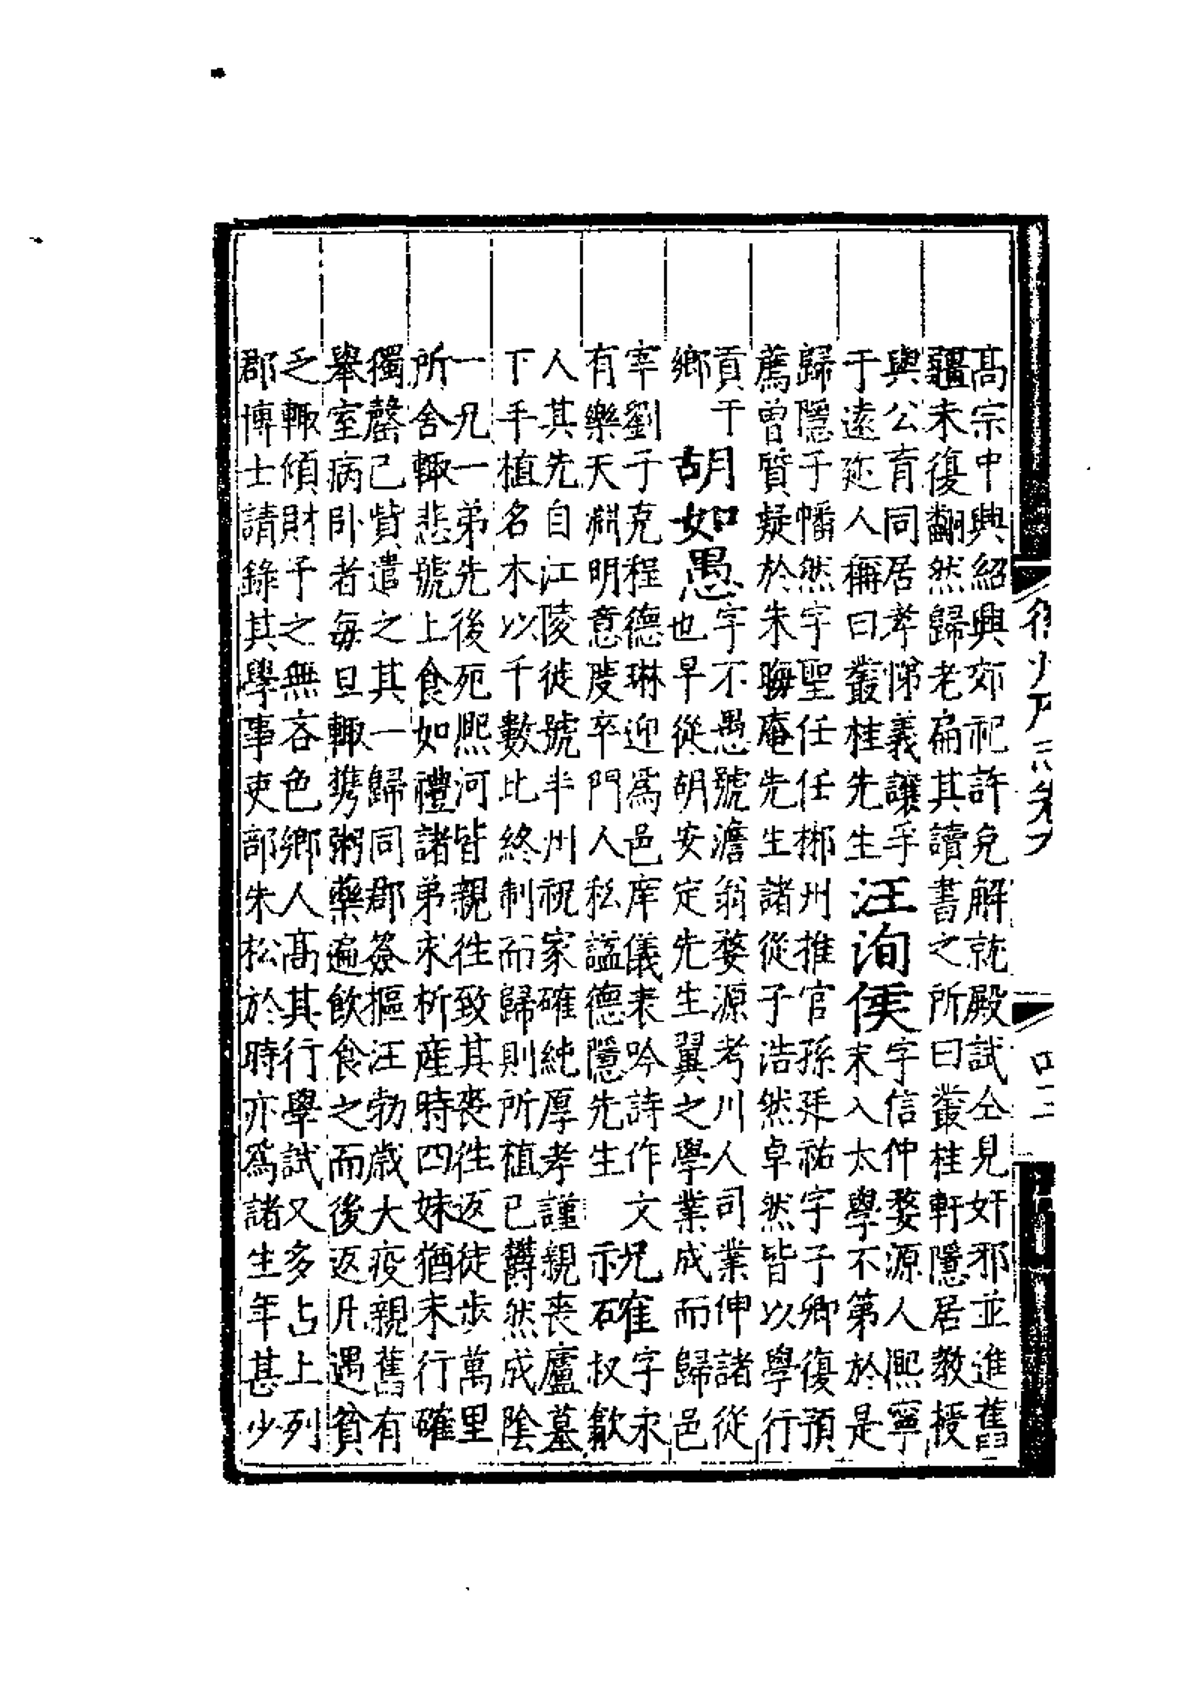 高宗中興紹興郊祀許免解就殿試仝見奸邪並進舊
疆未復翻然歸老扁其讀書之所曰叢桂軒隱居教授
與公育同居孝悌義讓孚
于遠迩人稱曰叢桂先生
汪洵侯
字信仲婺源人熙寧
末入太學不第於是
歸隱于幡然字聖任任郴州推官孫廷祐字子卿復預
薦曾質疑於朱晦庵先生諸從子浩然卓然皆以學行
貢于
鄉
胡如愚
字不愚號澹翁婺源考川人司業伸諸從
也早從胡安定先生翼之學業成而歸邑
宰劉于克程德琳迎爲邑庠儀表吟詩作文
有樂天淵明意度卒門人私謚德隱先生
祝確
字永
叔歙
人其先自江陵徙號半州祝家確純厚孝謹親喪廬墓
下手植名木以千數比終制而歸則所植已欝然成陰
一兄一弟先後死熙河皆親徃致其喪徃返徒步萬里
所舍輙悲號上食如禮諸弟求析產時四妹猶未行確
獨罄己貲遣之其一歸同郡簽樞汪勃歲大疫親舊有
舉室病卧者每旦輙携粥藥遍飲食之而後返凡遇貧
乏輙傾財予之無吝色鄉人高其行學試又多占上列
郡博士請錄其學事吏部朱松於時亦爲諸生年甚少